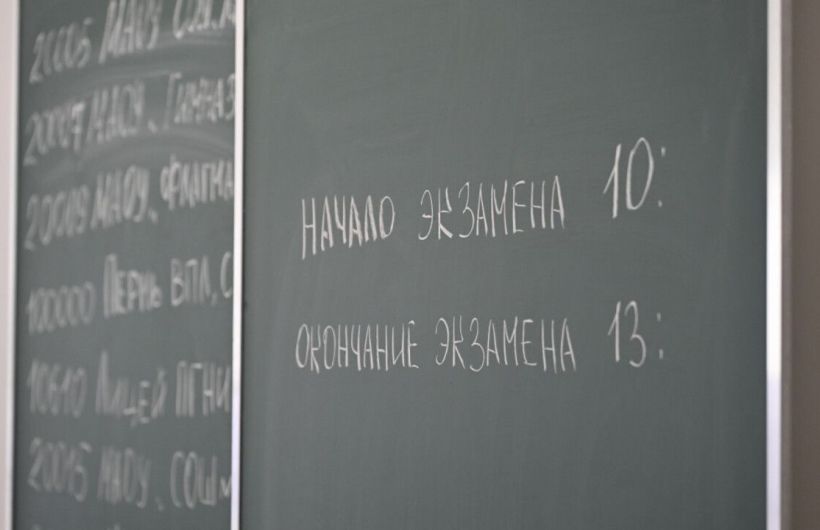 20005 МАОУ
20007 МАОУ, Гимназ
20019 МАОУ, ФЛАГМА
100000 Пермь ВПЛ, С
10610 Лицей ПГНИ
20015 МАОУ, СОШ
НАЧАЛО ЭКЗАМЕНА 10:
ОКОНЧАНИЕ ЭКЗАМЕНА 13: